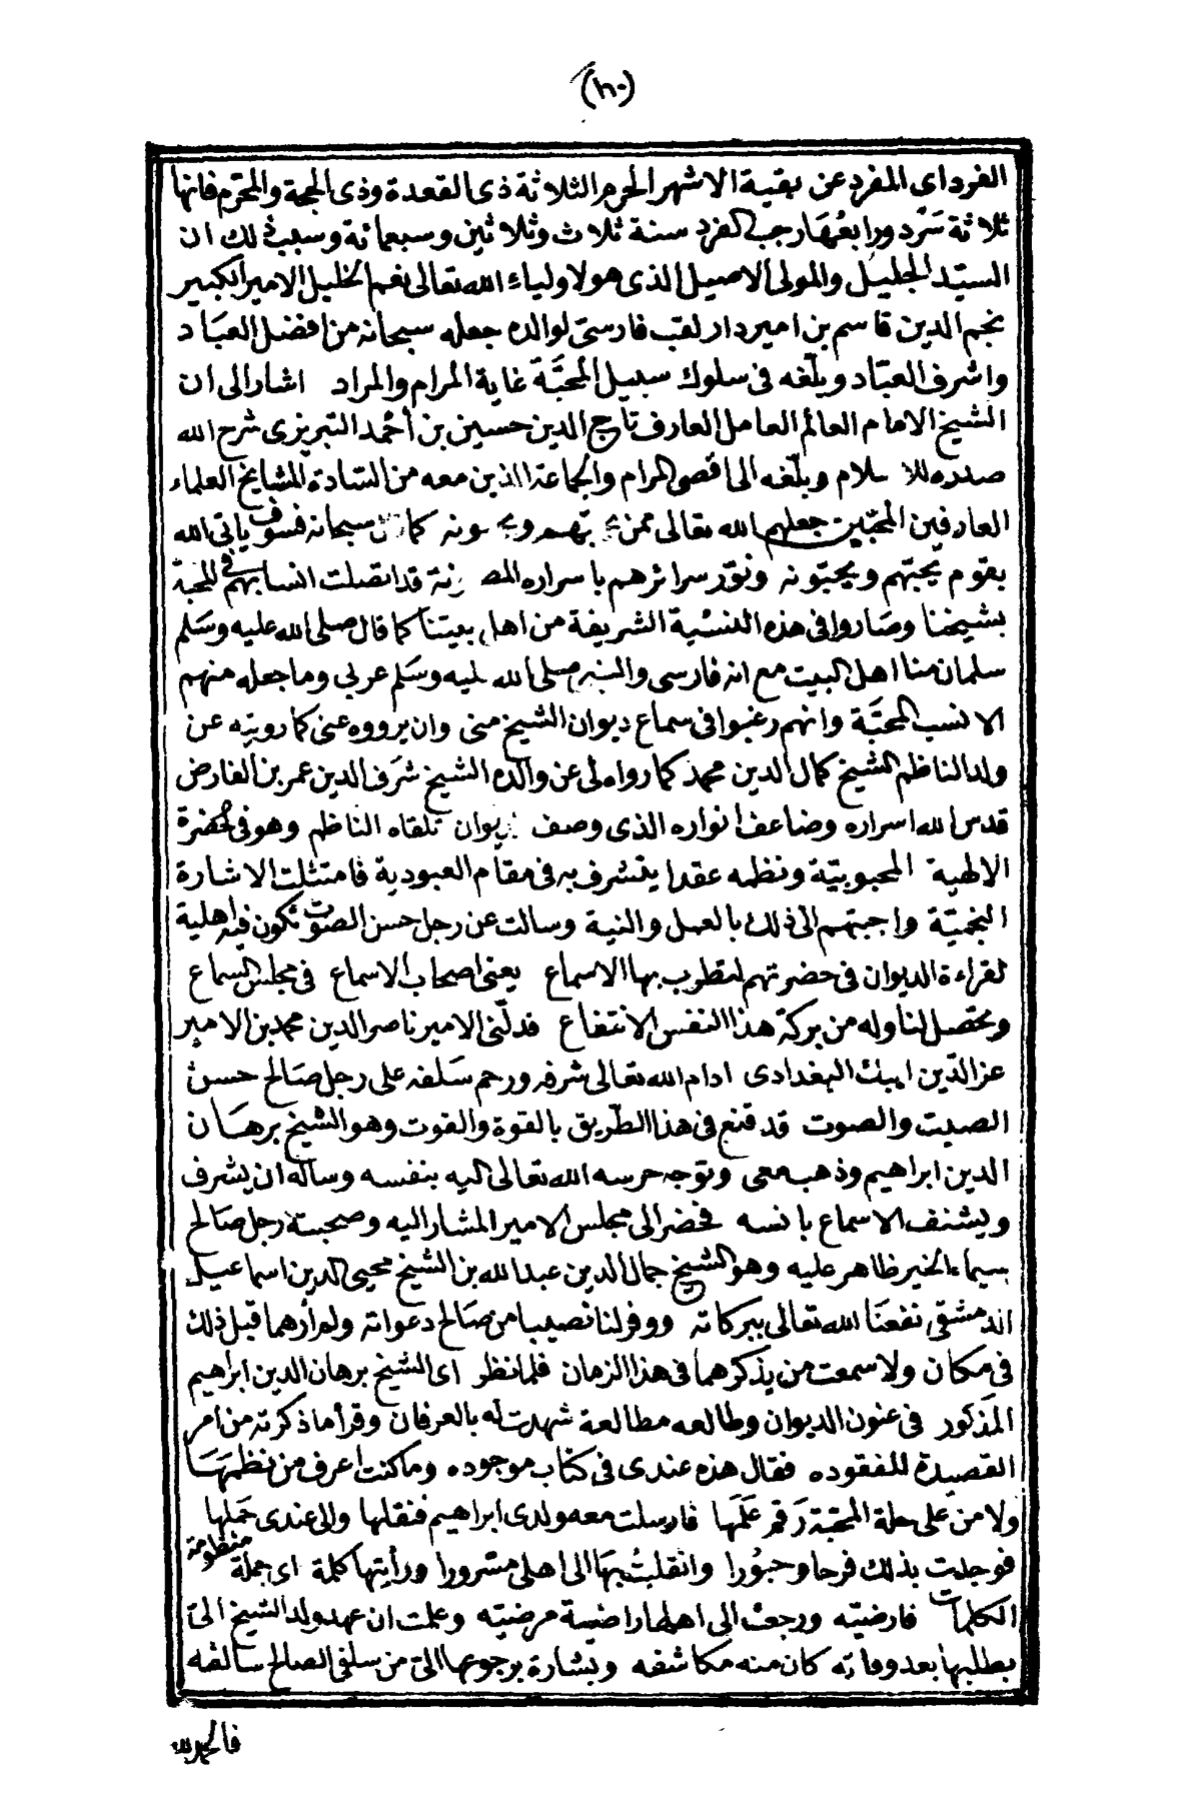 (٨٠)
الفرد اى المفرد عن بقية الاشهر الحرم الثلاثة ذى القعدة وذى الحجة والمحرّم فانها
ثلاثة سَرْد ورابعُهَا رجب الفرد سنة ثلاث وثلاثين وسبعمائة وسبب ذلك ان
السيّد الجليل والمولى الاصيل الذى هو لاولياء الله تعالى نعم الخليل الامير الكبير
نجم الدين قاسم بن امير دار لقب فارسىّ لوالده جعله سبحانه من افضل العبَاد
واشرف العبّاد وبلّغه فى سلوك سبيل المحبَّة غاية المرام والمراد اشار الى ان
الشيخ الامام العالم العامل العارف تاج الدين حسين بن أحْمد التبريزى شرح الله
صدره للاسلام وبلّغه الى اقصى المرام والجماعة الذين معه من السّادة المشايخ العلماء
العارفين المحبّين جعلهم الله تعالى ممن يحبّهم ويحبونه كما قال سبحانه فسوف ياتى الله
بقوم يحبّهم ويحبّونه ونوّر سرائرهم باسراره قد اتصلت انسابهم فى المحبة
بشيخنا وصَاروا فى هذه النسْبة الشريفة من اهل بيتنا كما قال صلى الله عليه وسَلم
سلمان منا اهل البيت مع انه فارسى والنبى صلى الله عليه وسَلم عربي وما جعله منهم
الا نسب المحبَّة وانهم رغبوا فى سماع ديوان الشيخ منى وان يرووه عنى كما رويته عن
ولد الناظم الشيخ كمال الدين محمد كما رواه لى عن والده الشيخ شرَف الدين عمر بن الفارض
قدس الله اسراره وضاعف انواره الذى وصف ديوان تلقاه الناظم وهو فى حُضرة
الالهية المحبوبيّة ونظمه عقدا يتشرف به فى مقام العبودية فامتثلت الاشارة
النجميّة واجبتهم الى ذلك بالعمل والنية وسالت عن رجل حسن الصوت تكون فيه اهلية
لقراءة الديوان فى حضرتهم لتطرب بها الاسماع يعنى اصحاب الاسماع فى مجلس السماع
ويحصل لنا وله من بركة هذا النفس الانتفاع فدلّنى الامير ناصر الدين محمد بن الامير
عز الدّين ايبك البغدادى ادام الله تعالى شرفه ورحم سَلفه على رجل صَالح حسن
الصيت والصوت قد قنع فى هذا الطّريق بالقوة والقوت وهو الشيخ برهَان
الدين ابراهيم وذهب معى وتوجه حرسه الله تعالى اليه بنفسه وساله ان يشرف
ويشنف الاسماع بانسه فحضر الى مجلس الامير المشار اليه وصحبته رجل صَالح
سيماء الخير ظاهر عليه وهو الشيخ جمال الدين عبد الله بن الشيخ محيى الدين اسماعيل
الدمشقى نفعَنا الله تعالى ببركاته ووفر لنا نصيبا من صَالح دعواته ولم أرهما قبل ذلك
فى مكان ولا سمعت من يذكرهما فى هذا الزمان فلما نظر اى الشيخ برهان الدين ابراهيم
المَذكور فى عنون الديوان وطالعه مطالعة شهدت له بالعرفان وقرأ ما ذكرته من امر
القصيدة المفقوده فقال هذه عندى فى كتاب موجوده وما كنت اعرف من نظمهَا
ولا من على حلة المحبّة رَقم عَلَمها فارسلت معه ولدى ابراهيم فنقلها والى عندى حَملها
فوجدت بذلك فرحا وحبُورا وانقلبتُ بهَا الى اهلى مسْرورا ورأيتها كلمة اى جملة منظومة
الكلمات فارضيّه ورجعتْ الى اهلها راضية مرضيّه وعلمت ان عهد ولد الشيخ الىّ
بطلبها بعد وفاته كان منه مكاشفه وبشارة برجوعها الىّ من سلفى الصالح سالفه
فالحمد لله